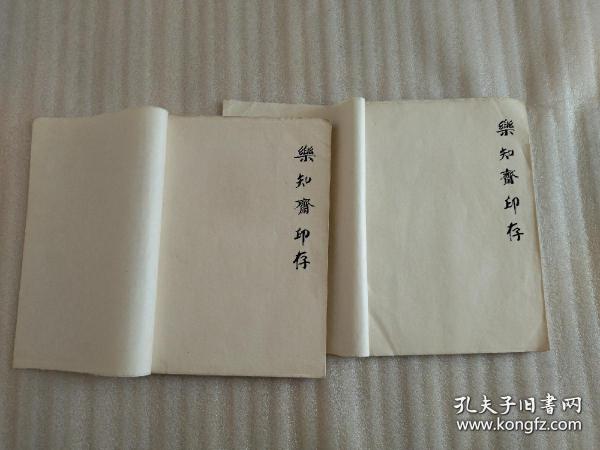 樂知齋印存
樂知齋印存
孔夫子旧書网
www.kongfz.com